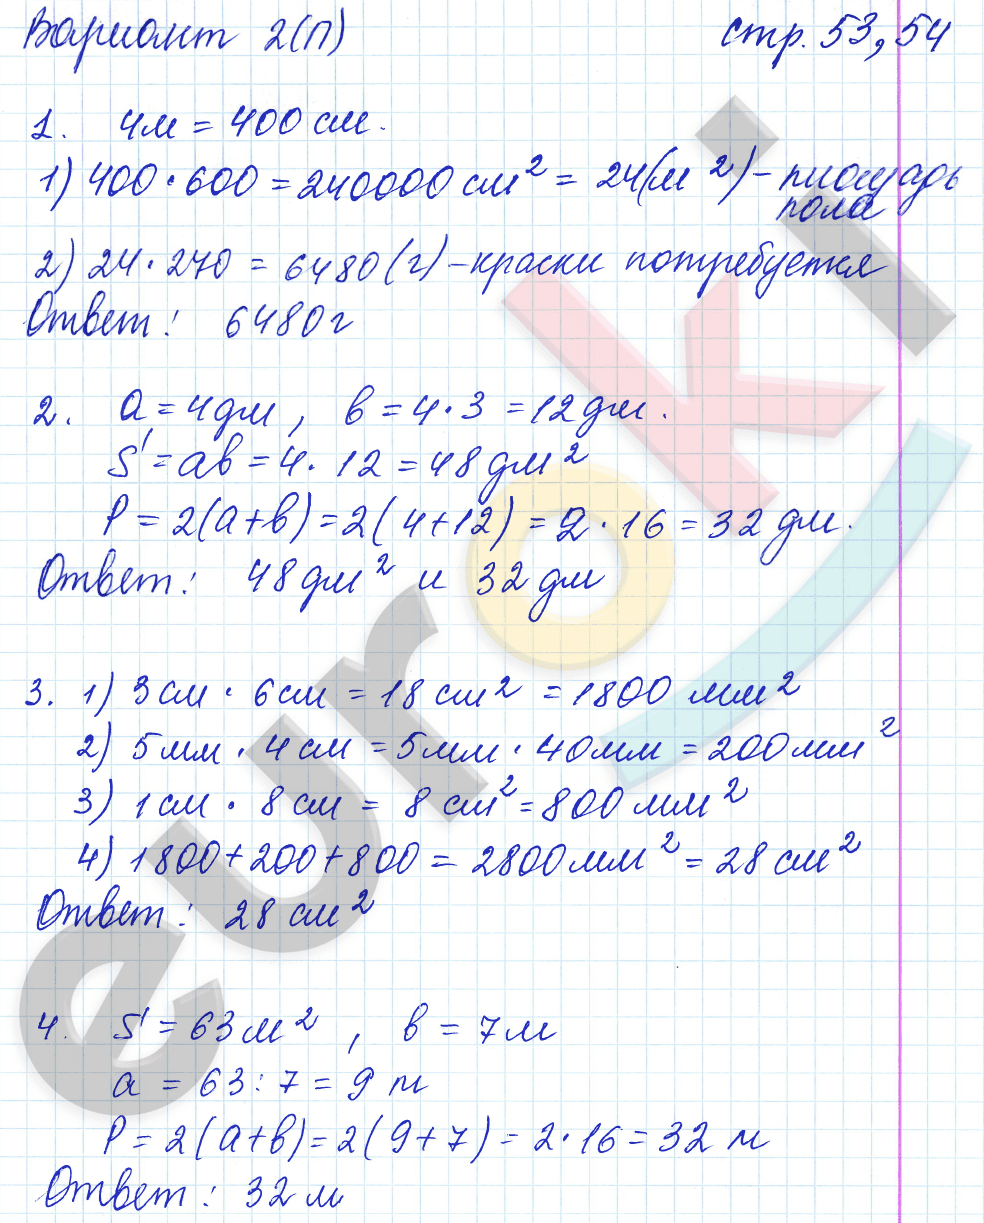 Вариант 2(П) стр. 53, 54
1. 4м = 400 см.
1) 400 · 600 = 240000 см² = 24(м²) – площадь
пола
2) 24 · 270 = 6480 (г) – краски потребуется
Ответ: 6480 г
2. a = 4 дм, в = 4 · 3 = 12 дм.
S = aв = 4 · 12 = 48 дм²
P = 2(a+в) = 2(4+12) = 2 · 16 = 32 дм.
Ответ: 48 дм² и 32 дм
3. 1) 3 см · 6 см = 18 см² = 1800 мм²
2) 5 мм · 4 см = 5 мм · 40 мм = 200 мм²
3) 1 см · 8 см = 8 см² = 800 мм²
4) 1800 + 200 + 800 = 2800 мм² = 28 см²
Ответ: 28 см²
4. S = 63 м², в = 7 м
a = 63 : 7 = 9 м
P = 2(a+в) = 2(9+7) = 2 · 16 = 32 м
Ответ: 32 м
euroki